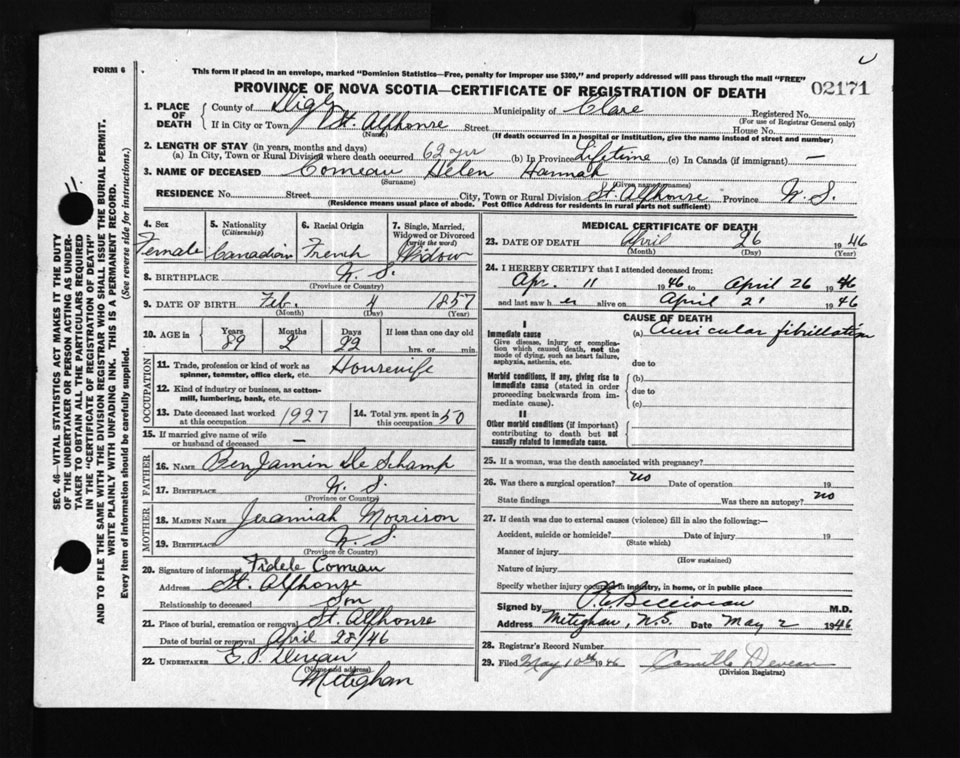 FORM 6
This form if placed in an envelope, marked "Dominion Statistics—Free, penalty for improper use $300," and properly addressed will pass through the mail "FREE"
PROVINCE OF NOVA SCOTIA—CERTIFICATE OF REGISTRATION OF DEATH
02171
1. PLACE OF DEATH County of Digby Municipality of Clare Registered No.
(For use of Registrar General only)
If in City or Town St. Alphonse Street House No.
(Name) (If death occurred in a hospital or institution, give the name instead of street and number)
2. LENGTH OF STAY (in years, months and days)
(a) In City, Town or Rural Division where death occurred 62 yrs (b) In Province Lifetime (c) In Canada (if immigrant) —
3. NAME OF DECEASED Comeau Helen Hannah
(Surname) (Given names)
RESIDENCE No. Street City, Town or Rural Division St. Alphonse Province N.S.
(Residence means usual place of abode. Post Office Address for residents in rural parts not sufficient)
SEC. 46—VITAL STATISTICS ACT MAKES IT THE DUTY
OF THE UNDERTAKER OR PERSON ACTING AS UNDER-
TAKER TO OBTAIN ALL THE PARTICULARS REQUIRED
IN THE "CERTIFICATE OF REGISTRATION OF DEATH"
AND TO FILE THE SAME WITH THE DIVISION REGISTRAR WHO SHALL ISSUE THE BURIAL PERMIT.
WRITE PLAINLY WITH UNFADING INK. THIS IS A PERMANENT RECORD.
Every item of information should be carefully supplied. (See reverse side for instructions.)
4. Sex 5. Nationality (Citizenship) 6. Racial Origin 7. Single, Married, Widowed or Divorced (write the word)
Female Canadian French Widow
8. BIRTHPLACE N.S.
(Province or Country)
9. DATE OF BIRTH Feb. 4 1857
(Month) (Day) (Year)
10. AGE in Years Months Days If less than one day old
89 2 22 hrs. or min.
OCCUPATION
11. Trade, profession or kind of work as spinner, teamster, office clerk, etc. Housewife
12. Kind of industry or business, as cotton-mill, lumbering, bank, etc.
13. Date deceased last worked at this occupation 1927 14. Total yrs. spent in 50
15. If married give name of wife or husband of deceased —
FATHER
16. NAME Benjamin De Schamp
17. BIRTHPLACE N.S.
(Province or Country)
MOTHER
18. MAIDEN NAME Jeramiah Morrison
19. BIRTHPLACE N.S.
(Province or Country)
20. Signature of informant Fidele Comeau
Address St. Alphonse
Relationship to deceased Son
21. Place of burial, cremation or removal St. Alphonse
Date of burial or removal April 28/46
22. UNDERTAKER
(Name and address)
Meteghan
MEDICAL CERTIFICATE OF DEATH
23. DATE OF DEATH April 26 1946
(Month) (Day) (Year)
24. I HEREBY CERTIFY that I attended deceased from:
Apr. 11 1946 to April 26 1946
and last saw her alive on April 21 1946
CAUSE OF DEATH
I
Immediate cause (a) Auricular fibrillation
Give disease, injury or complica-
tion which caused death, not the
mode of dying, such as heart failure,
asphyxia, asthenia, etc. due to
Morbid conditions, if any, giving rise to (b)
immediate cause (stated in order due to
proceeding backwards from im-
mediate cause). (c)
II
Other morbid conditions (if important)
contributing to death but not
causally related to immediate cause.
25. If a woman, was the death associated with pregnancy?
26. Was there a surgical operation? no Date of operation 19
State findings Was there an autopsy? no
27. If death was due to external causes (violence) fill in also the following:—
Accident, suicide or homicide? Date of injury 19
(State which)
Manner of injury
(How sustained)
Nature of injury
Specify whether injury occurred in industry, in home, or in public place
Signed by M.D.
Address Meteghan, N.S. Date May 2 1946
28. Registrar's Record Number
29. Filed May 10th 1946 Camille Deveau
(Division Registrar)